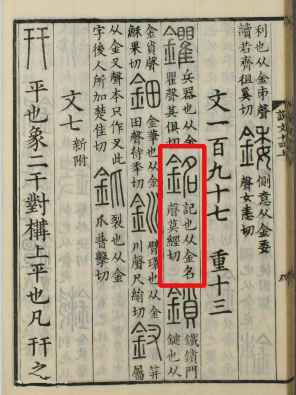 利也从金𠂔聲
讀若齊徂奚切
錗
側意从金委
聲女恚切
文一百九十七 重十三
鑺
兵器也从金
瞿聲其俱切
銘
記也从金名
聲莫經切
鎖
鐵鎖門
鍵也从
金𧴪聲
穌果切
鈿
金華也从金
田聲待秊切
釧
臂環也从金
川聲尺絹切
釵
笄屬
从金叉聲本只作叉此
字後人所加楚佳切
釽
裂也从金
爪普擊切
文七 新附
幵 平也象二干對構上平也凡幵之
說文十四上